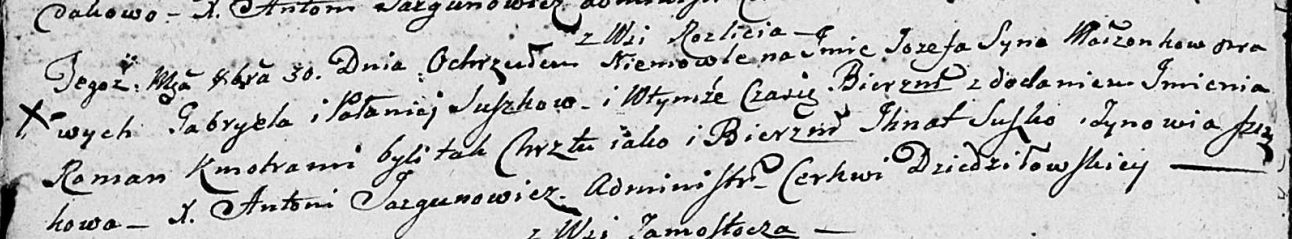 dakowo – X. Antoni Jazgunowicz
z Wsi Rozlicia –
Tegoż Mća 8bra 30. Dnia Ochrzciłem Niemowle na Imie Jozefa Syna Małzonkow pra
wych Gabryela i Pałaniej Suszkow – i Wtymże Czasie Bierzm z dodaniem Imienia
Roman Kmotrami byli tak Chrztu iako i Bierzm Ihnat Suszko i Zynowia
kowa – X. Antoni Jazgunowicz Administr Cerkwi Dziedziłowskiey
z Wsi Zamostocza –